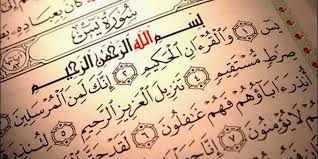 كَانَ بِعِبَادِهِ
سُورَةُ يسٓ
بِسْمِ اللَّهِ الرَّحْمَٰنِ الرَّحِيمِ
يسٓ ١ وَالْقُرْءَانِ الْحَكِيمِ ٢ إِنَّكَ لَمِنَ الْمُرْسَلِينَ
صِرَاطٍ مُّسْتَقِيمٍ ٤ تَنزِيلَ الْعَزِيزِ الرَّحِيمِ ٥ لِتُنذِرَ
أُنذِرَ ءَابَاؤُهُمْ فَهُمْ غَٰفِلُونَ ٦ لَقَدْ
لَا يُؤْمِنُونَ